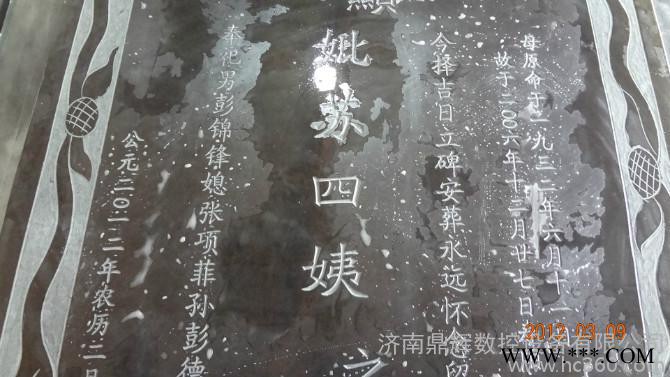 母原命于一九三二年六月十一
故于二00六年十二月廿七日
今择吉日立碑安葬永远怀念
显
妣苏四姨之
奉祀男彭锦锋媳张项菲孙彭德
公元二0一二年农历二月
2012 03 09
济南鼎辉数控
www.***.COM